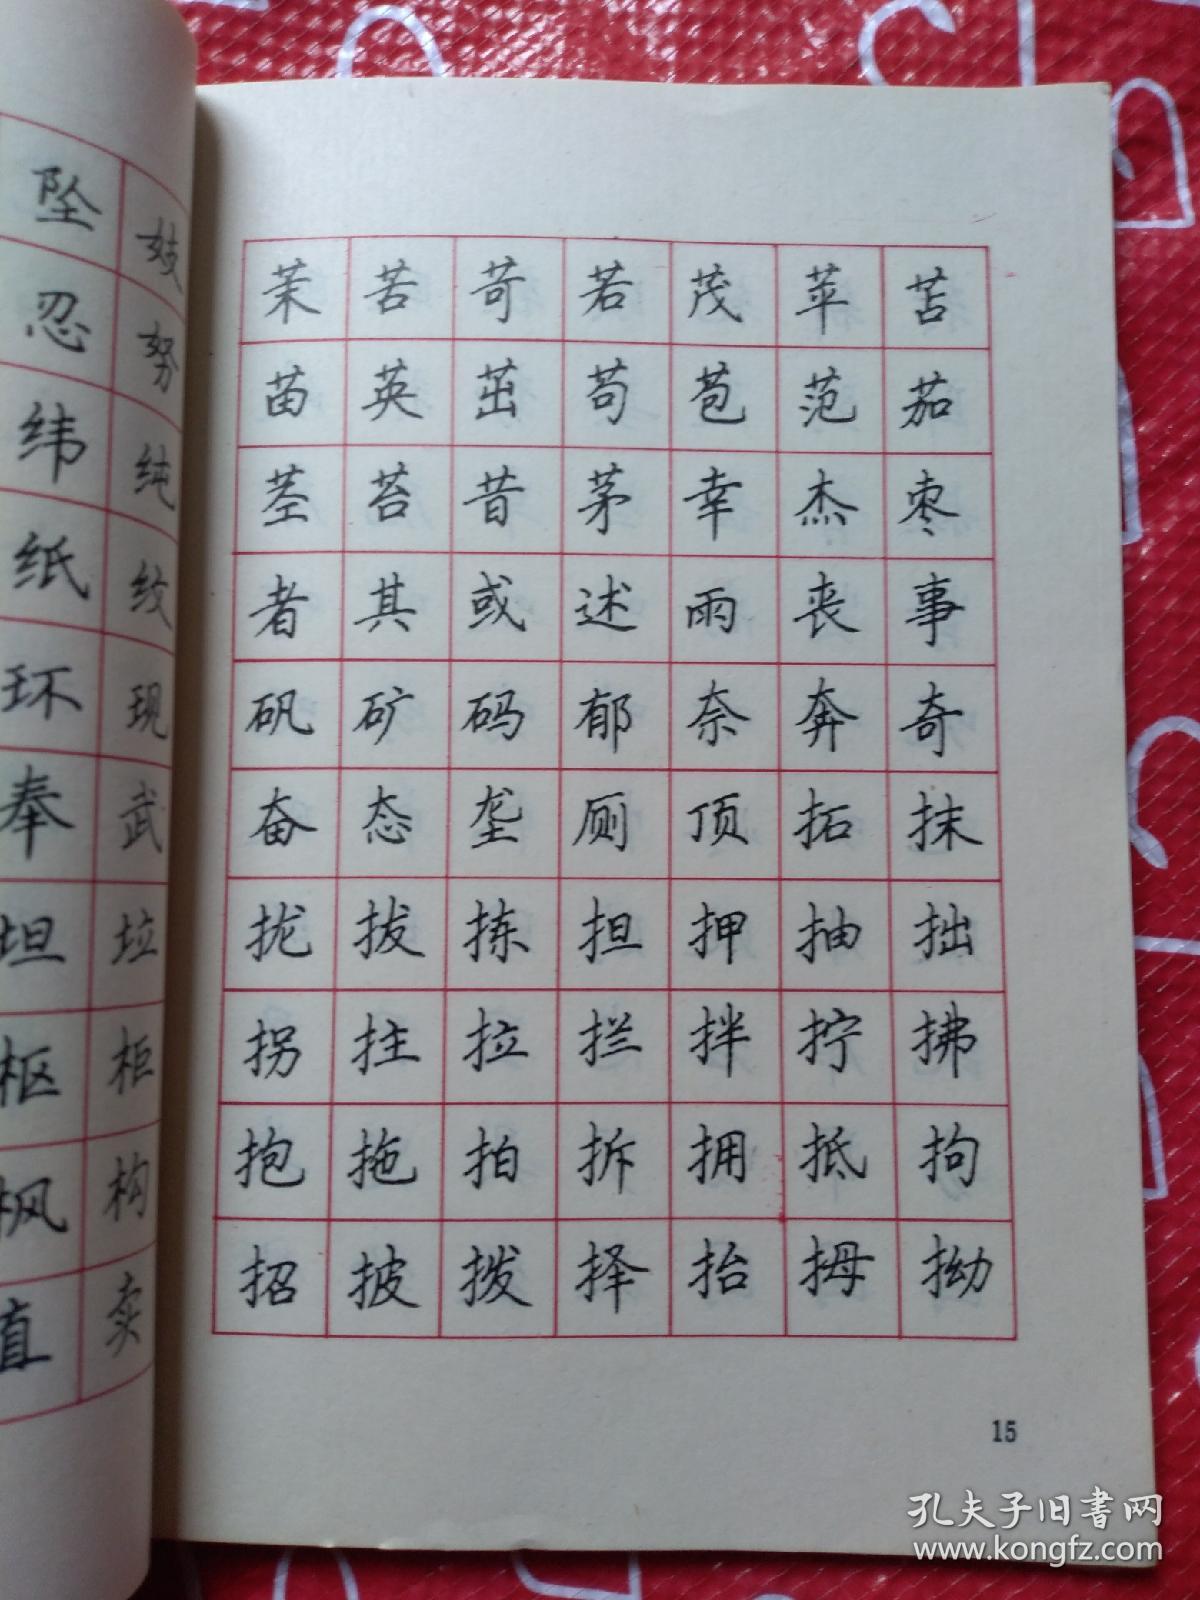 坠 妓
忍 努
纬 纯
纸 纹
环 现
奉 武
坦 垃
枢 柜
枫 构
直 卖
茉 苦 苛 若 茂 苹 苫
苗 英 茁 苟 苞 范 茄
茎 苔 昔 茅 幸 杰 枣
者 其 或 述 雨 丧 事
矾 矿 码 郁 奈 奔 奇
奋 态 垄 厕 顶 拓 抹
拢 拔 拣 担 押 抽 拙
拐 拄 拉 拦 拌 拧 拂
抱 拖 拍 拆 拥 抵 拘
招 披 拨 择 抬 拇 拗
15
孔夫子旧书网
www.kongfz.com